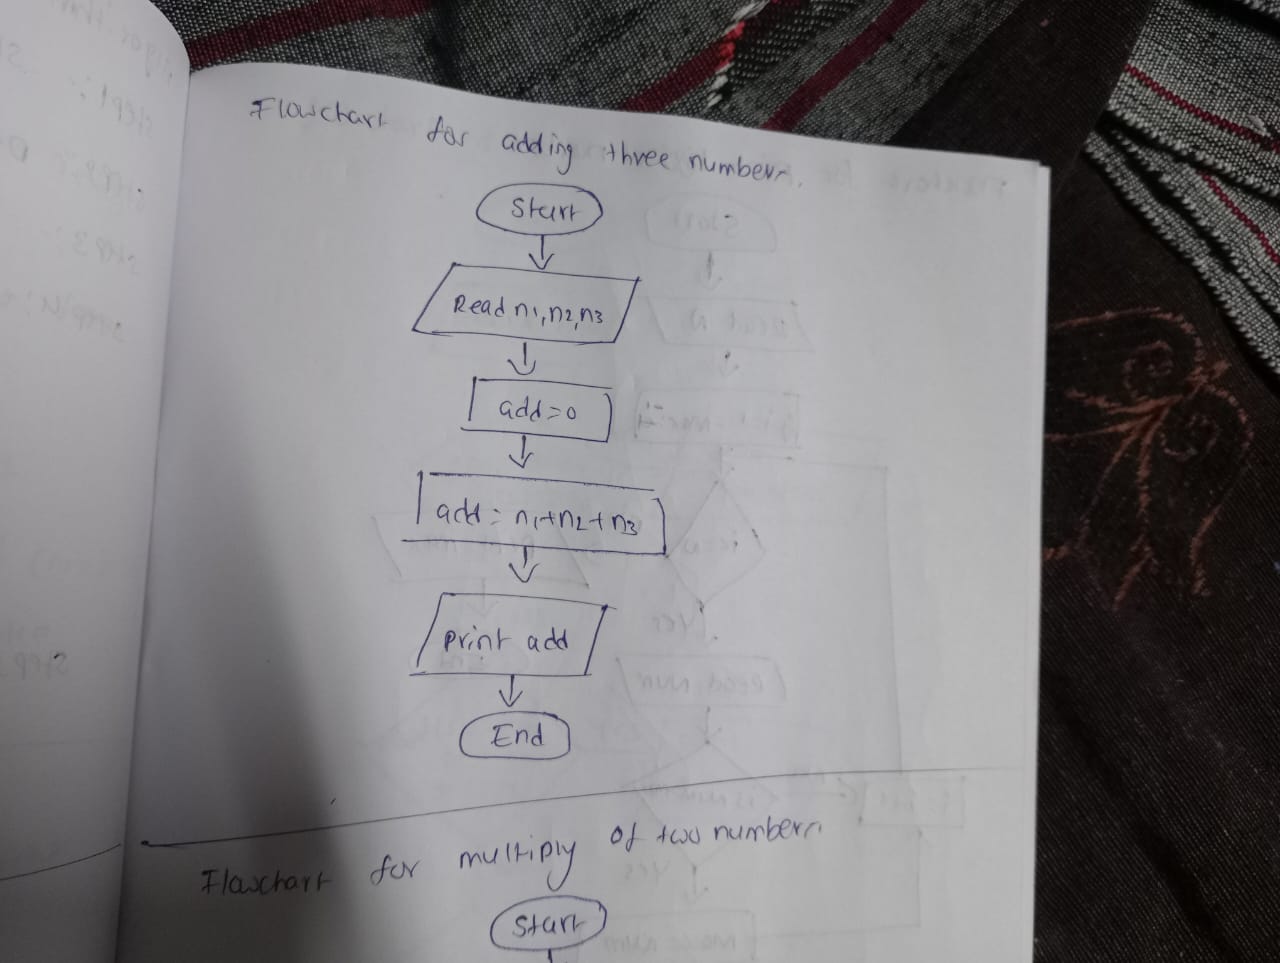 Flowchart for adding three numbers.
Start
Read n1,n2,n3
add=0
add = n1+n2+n3
print add
End
Flowchart for multiply of two numbers
Start